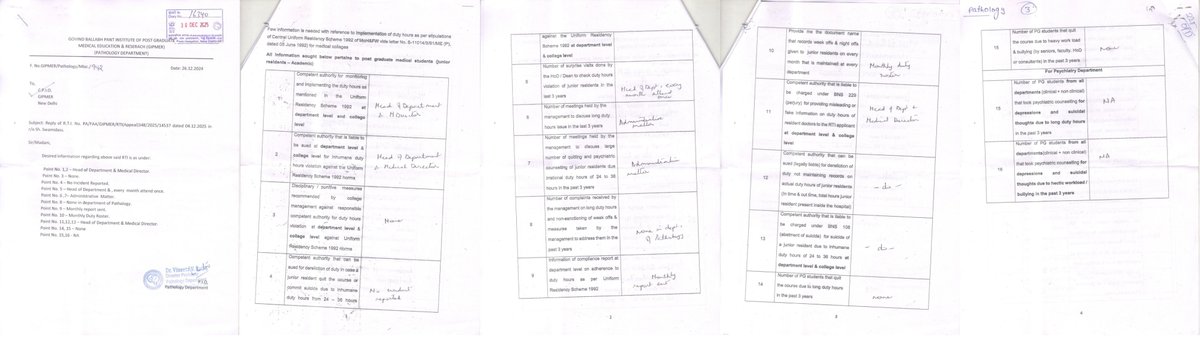 16340
18 DEC 2025
GOVIND BALLABH PANT INSTITUTE OF POST GRADUATE
MEDICAL EDUCATION & RESERACH (GIPMER)
(PATHOLOGY DEPARTMENT)
F. No.GIPMER/Pathology/Misc./942
Date: 26.12.2024
To
GIPMER
New Delhi
Subject: Reply of R.T.I. No. PA/FAA/GIPMER/RTI(Appeal)
dated 04.12.2025 in
r/o Sh.
Sir/Madam,
Desired information regarding above said RTI is as under:
Point No. 1,2 – Head of Department & Medical Director.
Point No. 3 – None.
Point No. 4 – No Incident Reported.
Point No. 5 – Head of Department & , every month attend once.
Point No. 6 ,7– Administrative Matter.
Point No. 8 – None in department of Pathology.
Point No. 9 – Monthly report sent.
Point No. 10 – Monthly Duty Roster.
Point No. 11,12,13 – Head of Department & Medical Director.
Point No. 14, 15 – None
Point No. 15,16 - NA
Pathology Department
Few information is needed with reference to implementation of duty hours as per stipulations
of Central Uniform Residency Scheme 1992 of MoH&FW vide letter No. S-11014/3/91/ME (P),
dated 05 June 1992) for medical colleges
All information sought below pertains to post graduate medical students (junior
residents – Academic)
1
Competent authority for monitoring
and implementing the duty hours as
mentioned in the Uniform
Residency Scheme 1992 at
department level and college
level
Head of Department
& M Director
2
Competent authority that is liable to
be sued at department level &
college level for inhumane duty
hours violation against the Uniform
Residency Scheme 1992 norms
Head of Department
& Medical Director
3
Disciplinary / punitive measures
recommended by college
management against responsible
competent authority for duty hours
violation at department level &
college level against Uniform
Residency Scheme 1992 norms
None
4
Competent authority that can be
sued for dereliction of duty in case a
junior resident quit the course or
commit suicide due to inhumane
duty hours from 24 – 36 hours
No incident
reported
1
against the Uniform Residency
Scheme 1992 at department level
& college level
5
Number of surprise visits done by
the HoD / Dean to check duty hours
violation of junior residents in the
last 3 years
Head of Dept, every
month attend
once
6
Number of meetings held by the
management to discuss long duty
hours issue in the last 3 years
Administrative
matter
7
Number of meetings held by the
management to discuss large
number of quitting and psychiatric
counselling of junior residents due
irrational duty hours of 24 to 36
hours in the past 3 years
Administration
matter
8
Number of complaints received by
the management on long duty hours
and non-sanctioning of week offs &
measures taken by the
management to address them in the
past 3 years
None in dept
of Pathology
9
Information of compliance report at
department level on adherence to
duty hours as per Uniform
Residency Scheme 1992
Monthly
report sent
2
10
Provide me the document
that records week offs & night offs
given to junior residents on every
month that is maintained at every
department
Monthly duty
roster
11
Competent authority that is liable to
be charged under BNS 229
(perjury) for providing misleading or
fake information on duty hours of
resident doctors to the RTI applicant
at department level & college
level
Head of Dept &
Medical Director
12
Competent authority that can be
sued (legally liable) for dereliction of
duty not maintaining records on
actual duty hours of junior residents
(in time & out time, total hours junior
resident present inside the hospital)
- do -
13
Competent authority that is liable to
be charged under BNS 108
(abatment of suicide) for suicide of
a junior resident due to inhumane
duty hours of 24 to 36 hours at
department level & college level
- do -
14
Number of PG students that quit
the course due to long duty hours
in the past 3 years
none
3
Pathology
3
15
Number of PG students that quit
the course due to heavy work load
& bullying (by seniors, faculty, HoD
or consultants) in the past 3 years
None
For Psychiatry Department
15
Number of PG students from all
departments (clinical + non clinical)
that took psychiatric counselling for
depressions and suicidal
thoughts due to long duty hours
in the past 3 years
NA
16
Number of PG students from all
departments(clinical + non clinical)
that took psychiatric counselling for
depressions and suicidal
thoughts due to hectic workload /
bullying in the past 3 years
NA
4